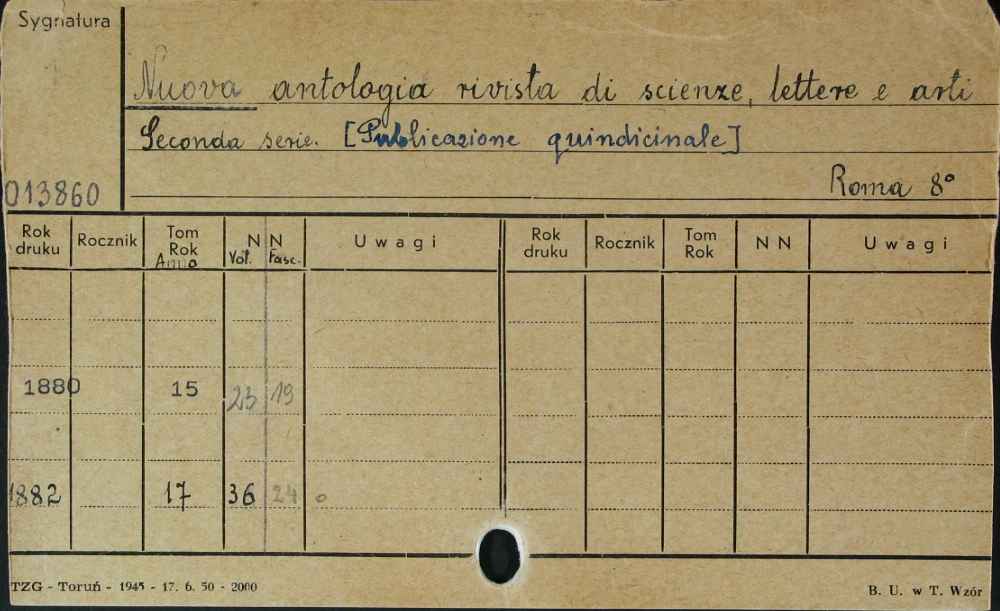 Sygnatura
Nuova antologia rivista di scienze, lettere e arti
Seconda serie. [Publicazione quindicinale]
013860
Roma 8°
Rok druku Rocznik Tom Rok Anno N N Vol. Fasc. Uwagi Rok druku Rocznik Tom Rok N N Uwagi
1880 15 23 19
1882 17 36 24
TZG - Toruń - 1945 - 17. 6. 50 - 2000 B. U. w T. Wzór